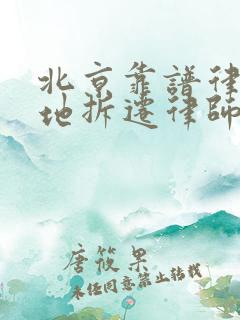 北京靠譜律
地拆遷律師
唐筱果
未经同意禁止转载